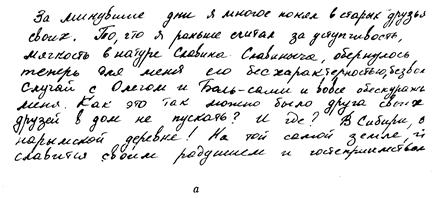 За минувшие дни я многое понял в старых друзьях
своих. То, что я раньше считал за уступчивость,
мягкость в натуре Славина Славиныча, обернулось
теперь для меня его бесхарактерностью, безвол
Случай с Олегом и Баль-сами и вовсе обескуражил
меня. Как это так можно было друга своих
друзей в дом не пускать? И где? В Сибири, в
нарымской деревне! На той самой земле,
славится своим радушием и гостеприимством
а